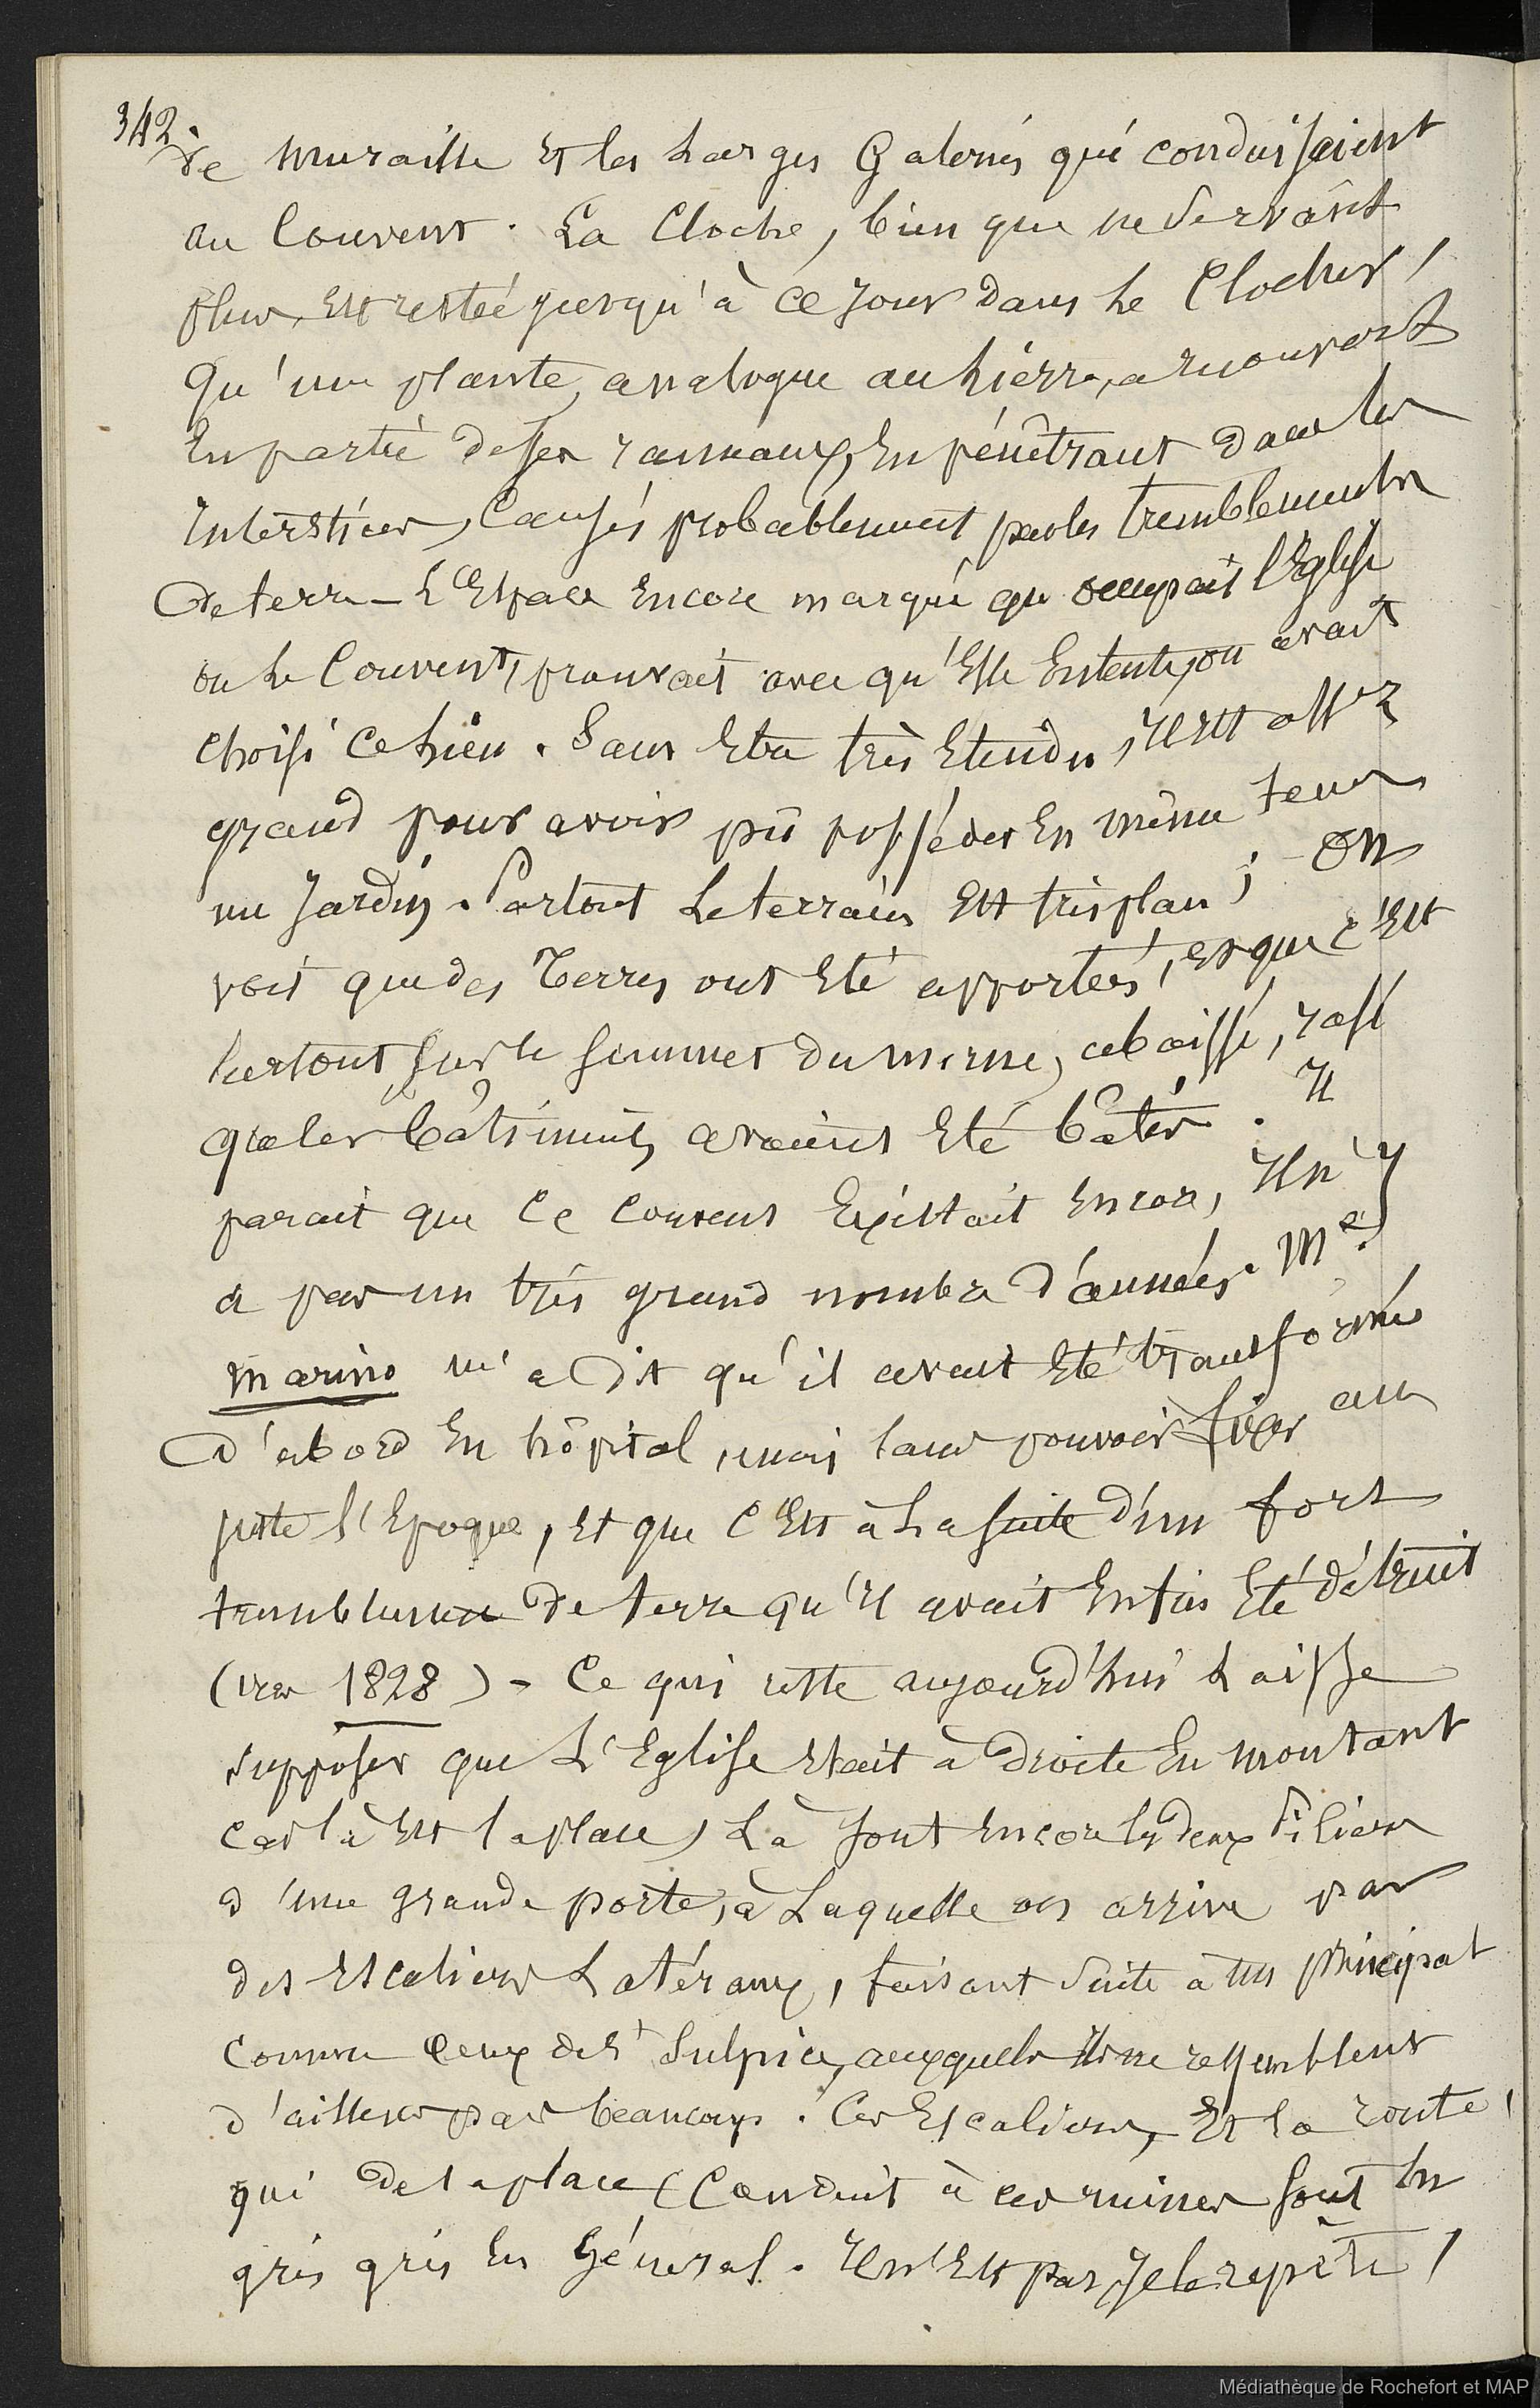 342.
de muraille et les larges Galeries qui conduisaient
au Couvent. La Cloche, bien que ne servant
plus, est restée jusqu'à ce jour dans le Clocher,
Qu'une plante, analogue au lierre, a recouvert
En partie de ses rameaux, En pénétrant dans les
interstices, Causés probablement par les tremblements
de terre – L'Espace Encore marqué qu'occupait l'Eglise
ou le Couvent, prouvait avec qu'Elle Entente, on avait
choisi ce lieu. Sans Etre très Etendu, il est assez
grand pour avoir pû posséder En même tems
un Jardin. Partout le terrain Est très plan; On
voit que des Terres ont Eté apportées, et que c'Est
surtout sur le sommet du morne, abaissé, rasé
que les bâtiments avaient Eté bâtis. Il
parait que ce couvent Existait Encore, Il n'y
a pas un très grand nombre d'années. Mr.
Marino m'a dit qu'il avait Eté transformé
d'abord En hôpital, mais sans pouvoir fixer au
juste l'Epoque, Et que c'Est à la suite d'un fort
tremblement de terre qu'il avait Enfin Eté détruit
(vers 1828) – Ce qui reste aujourd'hui laisse
supposer que L'Eglise était à droite En montant
car là Est la place, Là sont encore les deux Piliers
d'une grande porte, à Laquelle on arrive par
des Escaliers Latéraux, faisant suite à un principal
comme ceux de St Sulpice, auxquels ils ne ressemblent
d'ailleurs pas beaucoup. Ces Escaliers, Et la route,
qui de la place Conduit à ces ruines sont En
grès gris En Général. Il n'Est pas, Je le répète,
Médiathèque de Rochefort et MAP